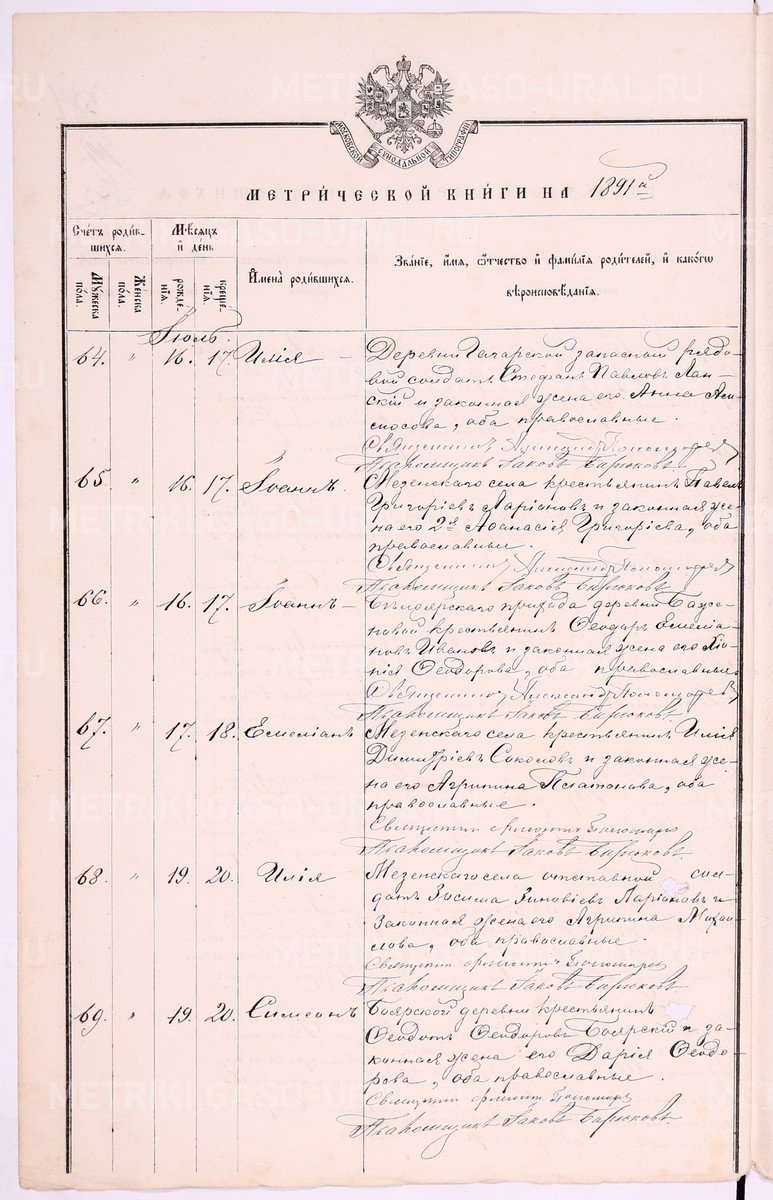 МОСКОВСКОЙ СѴНОДАЛЬНОЙ ТИПОГРАФІИ
МЕТРИ́ЧЕСКОЙ КНИ́ГИ НА 1891й
Сче́тъ роди́в-
шихся.
Мѣ́сяцъ
и҆ де́нь
И҆мена̀ роди́вшихся.
Зва́нїе, и҆́мѧ, ѻ҆́тчество и҆ фами́лїѧ роди́телей, и҆ како́гѡ
вѣроисповѣ́данїѧ.
Му́жеска по́ла.
Же́нска по́ла.
рожде́нїѧ.
креще́нїѧ.
Іюль.
64. „ 16. 17. Илія — Деревни Гагарской запасный рядо-
вой солдатъ Стефанъ Павловъ Лан-
скій и законная жена его Анна
оба православные.
Священникъ Александръ Пономаревъ
Псаломщикъ Іаковъ Бирюковъ
65. „ 16. 17. Іоаннъ. Мезенскаго села крестьянинъ Павелъ
Григоріевъ Ларіоновъ и законная же-
на его 2й Аѳанасія Григоріева, оба
православные.
Священникъ Александръ Пономаревъ
Псаломщикъ Іаковъ Бирюковъ
66. „ 16. 17. Іоаннъ — Бѣлоярскаго прихода деревни Баже-
новой крестьянинъ Ѳеодоръ Емеліа-
новъ Ивановъ и законная жена его
Ѳеодорова, оба православные.
Священникъ Александръ Пономаревъ
Псаломщикъ Іаковъ Бирюковъ
67. „ 17. 18. Емеліанъ Мезенскаго села крестьянинъ Илія
Димитріевъ Соколовъ и законная же-
на его Агрипина Платонова, оба
православные.
Священникъ Пономаревъ
Псаломщикъ Іаковъ Бирюковъ
68. „ 19. 20. Илія Мезенскаго села отставной сол-
датъ Зосима Зиновіевъ Ларіоновъ и
законная жена его Агрипина Михаи-
лова, оба православные.
Священникъ Пономаревъ
Псаломщикъ Іаковъ Бирюковъ
69. „ 19. 20. Симеонъ Боярской деревни крестьянинъ
Ѳеодотъ Ѳеодоровъ Боярскій и за-
конная жена его Дарія Ѳеодо-
рова, оба православные.
Священникъ Пономаревъ
Псаломщикъ Іаковъ Бирюковъ